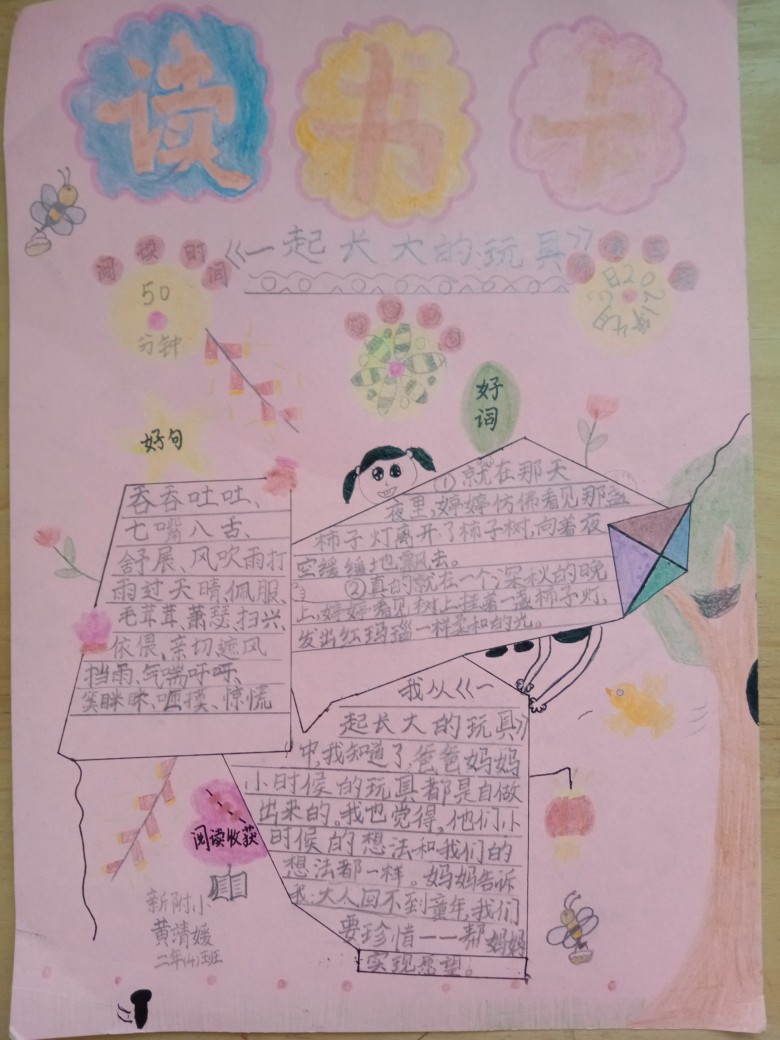 读书卡
《一起长大的玩具》
阅读时间
50
分钟
好句
好词
吞吞吐吐、
七嘴八舌、
舒展、风吹雨打
雨过天晴佩服、
毛茸茸、萧瑟、扫兴、
依偎、亲切遮风
挡雨、气喘呼呼、
笑眯眯、哑摸、惊慌
①就在那天
夜里,婷婷仿佛看见那盏
柿子灯离开了柿子树,向着夜
空缓缓地飘去。
②真的就在一个深秋的晚
上,婷婷看见树上挂着一盏柿子灯,
发出红玛瑙一样柔和的光。
我从《一
起长大的玩具》
中,我知道了,爸爸妈妈
小时候的玩具都是自做
出来的。我也觉得,他们小
时候的想法和我们的
想法都一样。妈妈告诉
我:大人回不到童年,我们
要珍惜——帮妈妈
实现愿望。
阅读收获
新附小
黄清媛
二年(4)班